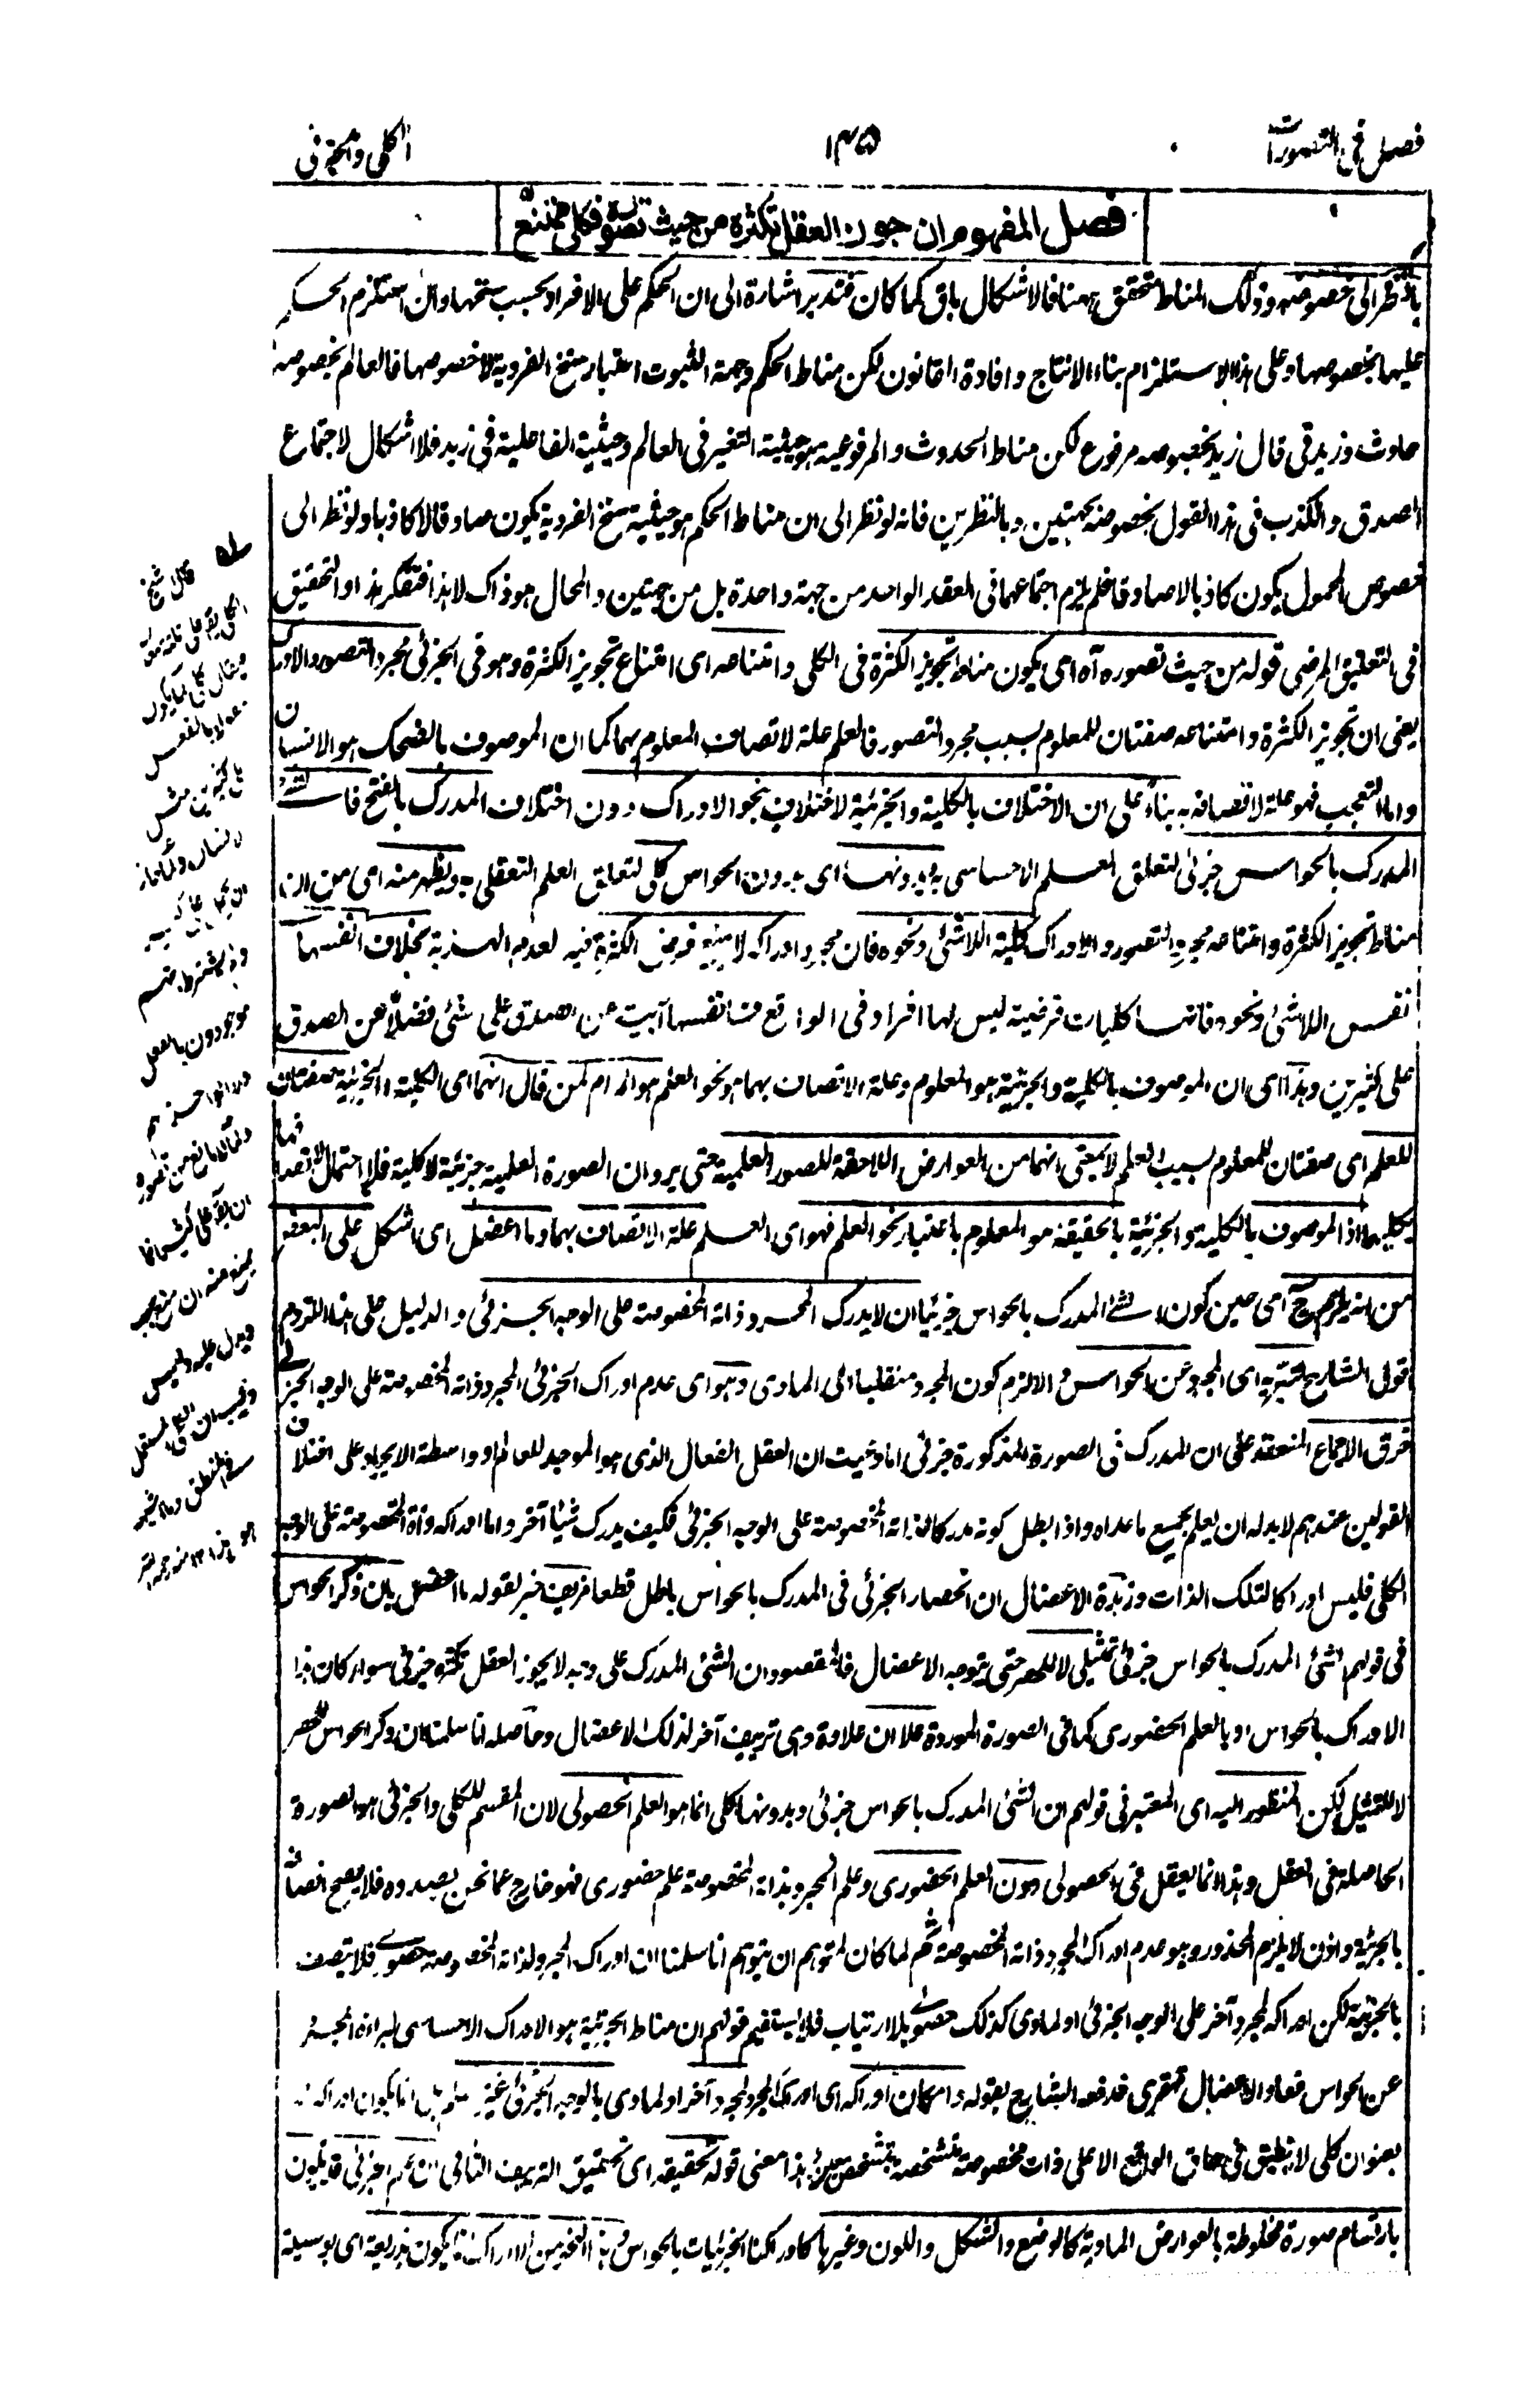 فصل فى التصورات
١٣٥
الكلى والجزئى
فصل المفهوم ان جوز العقل تكثره من حيث تصوره فكلى ممتنع
بالنظر الى خصوصه وذلك المناط متحقق ههنا فالاشكال باق كما كان فتدبر اشارة الى ان الحكم على الافراد بحسب سنخها وان استلزم الحكم
عليها بخصوصها وعلى هذا الاستلزام بناء الانتاج وافادة القانون لكن مناط الحكم وجهة الثبوت اعتبار سنخ الفردية لا خصوصها فالعالم بخصوصه
حادث وزيد فى قال زيد بخصوصه مرفوع لكن مناط الحدوث والمرفوعية هو حيثية التغير فى العالم وحيثية الفاعلية فى زيد فلا اشكال لاجتماع
الصدق والكذب فى هذا القول بخصوصه بجهتين وبالنظرين فانه لو نظر الى ان مناط الحكم هو حيثية سنخ الفردية يكون صادقا لا كاذبا ولو نظر الى
خصوص المحمول يكون كاذبا لا صادقا فلم يلزم اجتماعهما فى العقد الواحد من جهة واحدة بل من جهتين والمحال هو ذاك لا هذا فتفكر هذا والتحقيق
فى التعليق المرضى قوله من حيث تصوره آه اى يكون مناط تجويز الكثرة فى الكلى وامتناعه اى امتناع تجويز الكثرة وهو فى الجزئى مجرد التصور والادراك
يعنى ان تجويز الكثرة وامتناعه صفتان للمعلوم بسبب مجرد التصور فالعلم علة لاتصاف المعلوم بهما كما ان الموصوف بالضحك هو الانسان
واما التعجب فهو علة لاتصافه به بناءً على ان الاختلاف بالكلية والجزئية لاختلاف نحو الادراك دون اختلاف المدرك بالفتح فالشئ
المدرك بالحواس جزئى لتعلق العلم الاحساسى به وبدونها اى بدون الحواس كلى لتعلق العلم التعقلى به ويظهر منه اى من ان
مناط تجويز الكثرة وامتناعه مجرد التصور والادراك كلية اللاشئ ونحوه فان مجرد ادراكه لا يمنع فرض الكثرة فيه لعدم الهذية بخلاف انفسها
نفس اللاشئ ونحوه فانها كليات فرضية ليس لها افراد فى الواقع فانفسها آبية عن الصدق على شئ فضلاً عن الصدق
على كثيرين وهذا اى ان الموصوف بالكلية والجزئية هو المعلوم وعلة الاتصاف بهما هو نحو العلم هو المرام لمن قال انهما اى الكلية والجزئية صفتان
للعلم اى صفتان للمعلوم بسبب العلم لا بمعنى انهما من العوارض اللاحقة للصور العلمية حتى يرد ان الصورة العلمية جزئية لا كلية فلا احتمال لاتصافها
بكليهما اذ الموصوف بالكلية والجزئية بالحقيقة هو المعلوم باعتبار نحو العلم فهو اى العلم علة الاتصاف بهما وما اعضل اى اشكل على البعض
من انه يلزم ح اى حين كون الشئ المدرك بالحواس جزئيا ان لا يدرك المجرد ذاته المخصوصة على الوجه الجزئى والدليل على هذا اللزوم
قول الشارح لتبريه اى المجرد عن الحواس والا لزم كون المجرد منقلبا الى المادى وهو اى عدم ادراك الجزئى المجرد ذاته المخصوصة على الوجه الجزئى
خرق الاجماع المنعقد على ان المدرك فى الصورة المذكورة جزئى اما دريت ان العقل الفعال الذى هو الموجد للعالم او واسطة الايجاد على اختلاف
القولين عندهم لا بد له ان يعلم بجميع ما عداه واذا بطل كونه مدركا لذاته المخصوصة على الوجه الجزئى فكيف يدرك شيئا آخر واما ادراكه ذاته المخصوصة على الوجه
الكلى فليس ادراكا لتلك الذات وزبدة الاعضال ان انحصار الجزئى فى المدرك بالحواس باطل قطعا فزيف خبر لقوله ما اعضل بان ذكر الحواس
فى قولهم الشئ المدرك بالحواس جزئى تمثيلى لا للحصر حتى يتوجه الاعضال فالمقصود ان الشئ المدرك على وجه لا يجوز العقل تكثره جزئى سواء كان هذا
الادراك بالحواس او بالعلم الحضورى كما فى الصورة الموردة علا ان علاوة وهى تزييف آخر لذلك الاعضال وحاصله انا سلمنا ان ذكر الحواس للحصر
لا للتمثيل لكن المنظور اليه اى المعتبر فى قولهم ان الشئ المدرك بالحواس جزئى وبدونها كلى انما هو العلم الحصولى لان المقسم للكلى والجزئى هو الصورة
الحاصلة فى العقل وهذا انما يعقل فى الحصولى دون العلم الحضورى وعلم المجرد بذاته المخصوصة علم حضورى فهو خارج عما نحن بصدده فلا يصح اتصافه
بالجزئية واذن لا يلزم المحذور وهو عدم ادراك المجرد ذاته المخصوصة ثم لما كان لمتوهم ان يتوهم انا سلمنا ان ادراك المجرد لذاته المخصوصة حضورى فلا يتصف
بالجزئية لكن ادراكه لمجرد آخر على الوجه الجزئى او لمادى كذلك حصولى بلا ارتياب فلا يستقيم قولهم ان مناط الجزئية هو الادراك الاحساسى لبراءة المجرد
عن الحواس فعاد الاعضال قهقرى فدفعه الشارح بقوله وامكان ادراكه اى ادراك المجرد لمجرد آخر او لمادى بالوجه الجزئى غير مسلم بل انما يكون ادراكه
بعنوان كلى لا ينطبق فى حاق الواقع الا على ذات مخصوصة متشخصة بتشخص معين هذا معنى قوله تحقيقه اى تحقيق التزييف الثانى ان علم الجزئى قد يكون
بارتسام صورة مخلوطة بالعوارض المادية كالوضع والشكل واللون وغيرها كادراكنا الجزئيات بالحواس وهذا النحو من الادراك انما يكون بذريعة اى بوسيلة
قال الشيخ
موجودون بالفعل